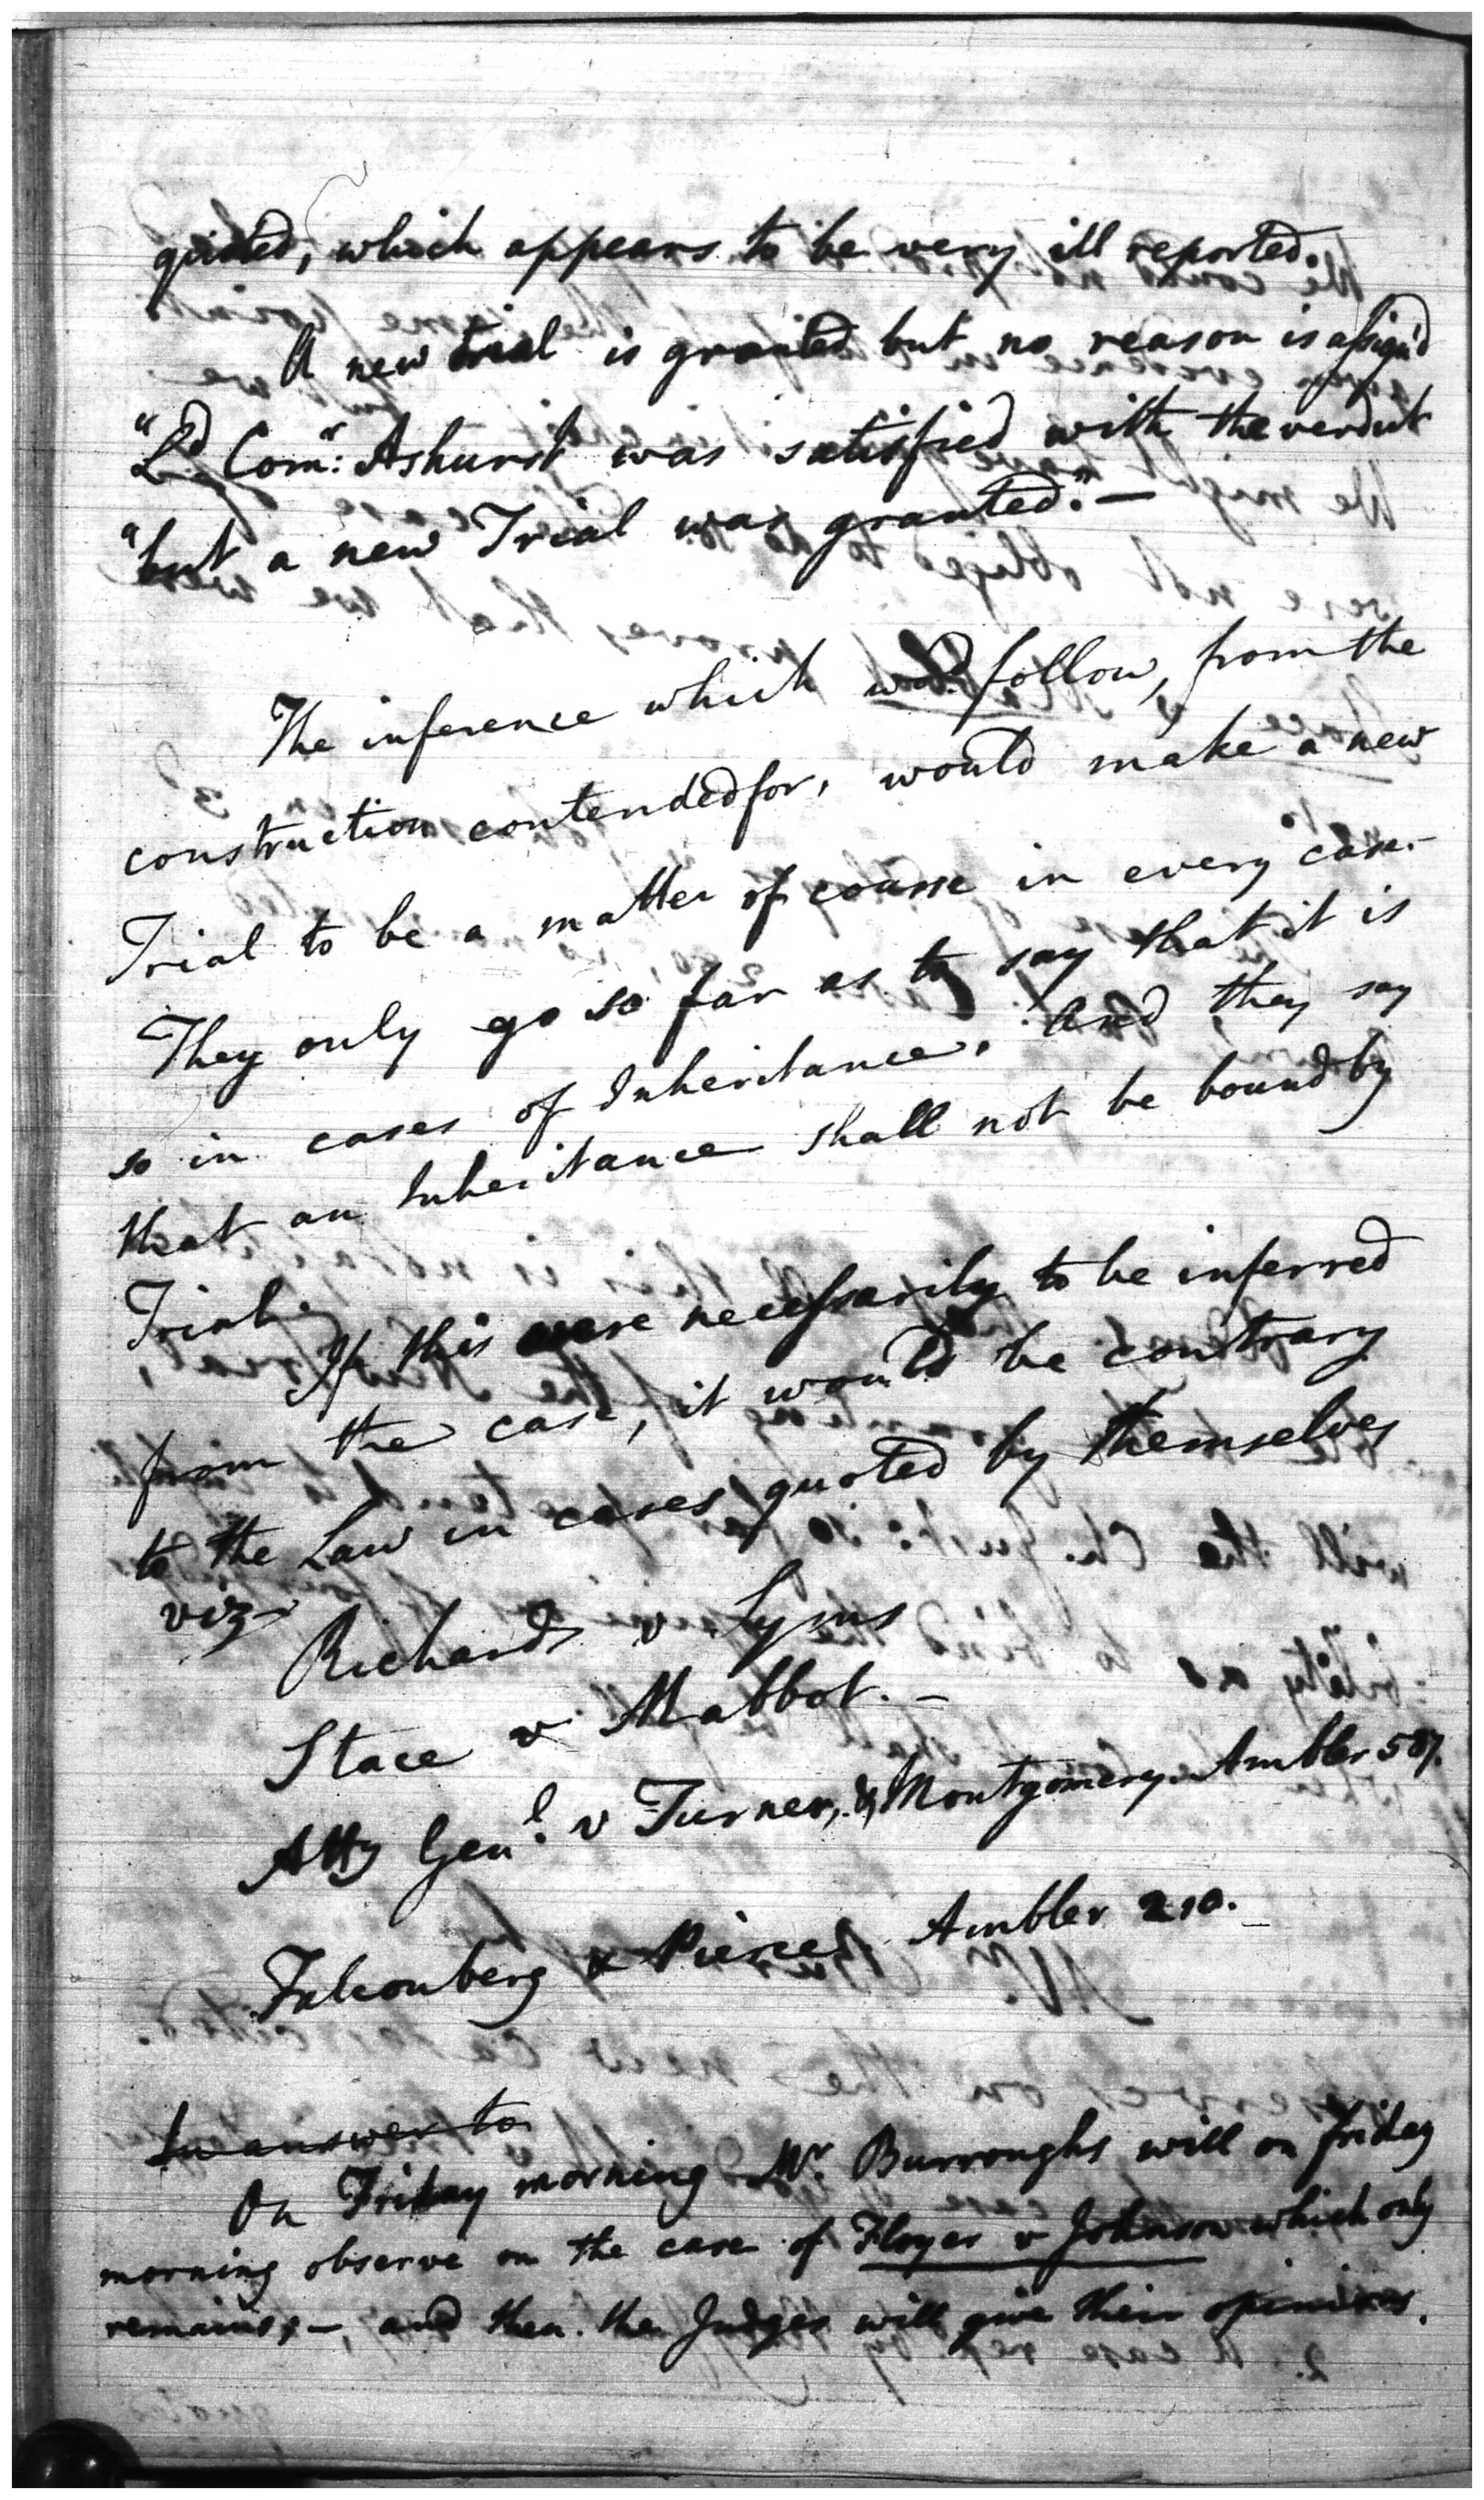 quoted, which appears to be very ill reported.
A new trial is granted but no reason is assign'd
"Ld Comr: Ashurst was satisfied with the verdict
"but a new Trial was granted." —
The inference which wd. follow, from the
construction contended for, would make a new
Trial to be a matter of course in every case. -
They only go so far as to say that it is
so in cases of Inheritance. And they say
that an Inheritance shall not be bound by
Trial.
If this were necessarily to be inferred
from the case, it would be contrary
to the Law in cases quoted by themselves
viz
Richards v Syms
Stace v Mabbot. -
Atty Genl. v Turner, & Montgomery. Ambler 587.
Falconberg & Pierce Ambler 210. -
In answer to
On Friday morning Mr. Burroughs will on friday
morning observe on the case of Floyer v Johnson which only
remains; -, and then the Judges will give their opinions.